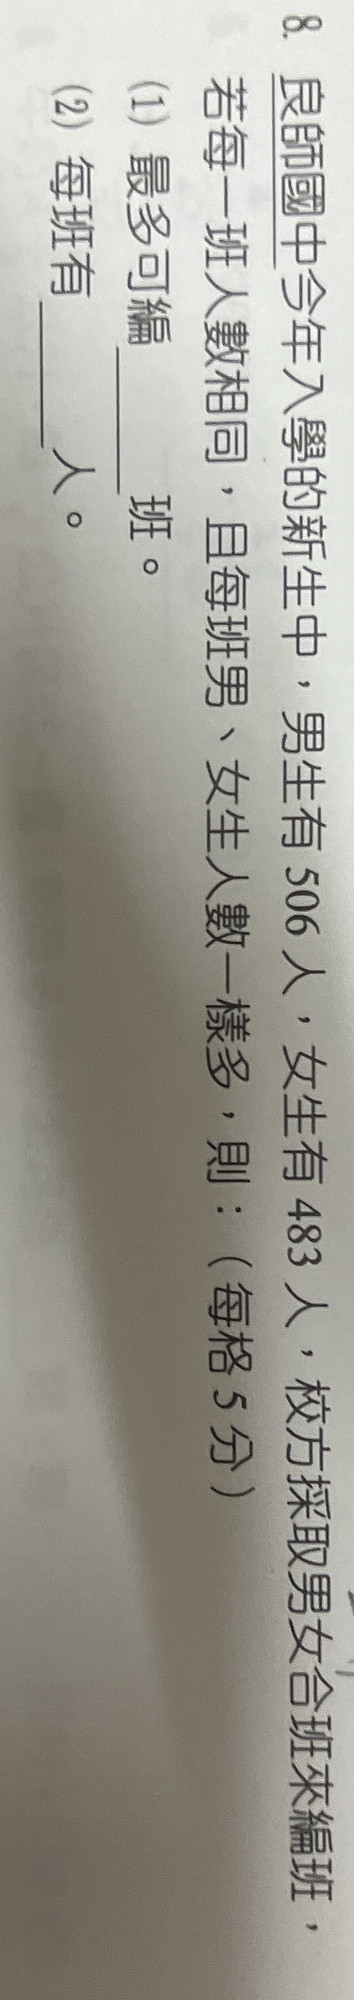 8. 良師國中今年入學的新生中，男生有 506 人，女生有 483 人，校方採取男女合班來編班，
若每一班人數相同，且每班男、女生人數一樣多，則：（每格 5 分）
(1) 最多可編______班。
(2) 每班有______人。